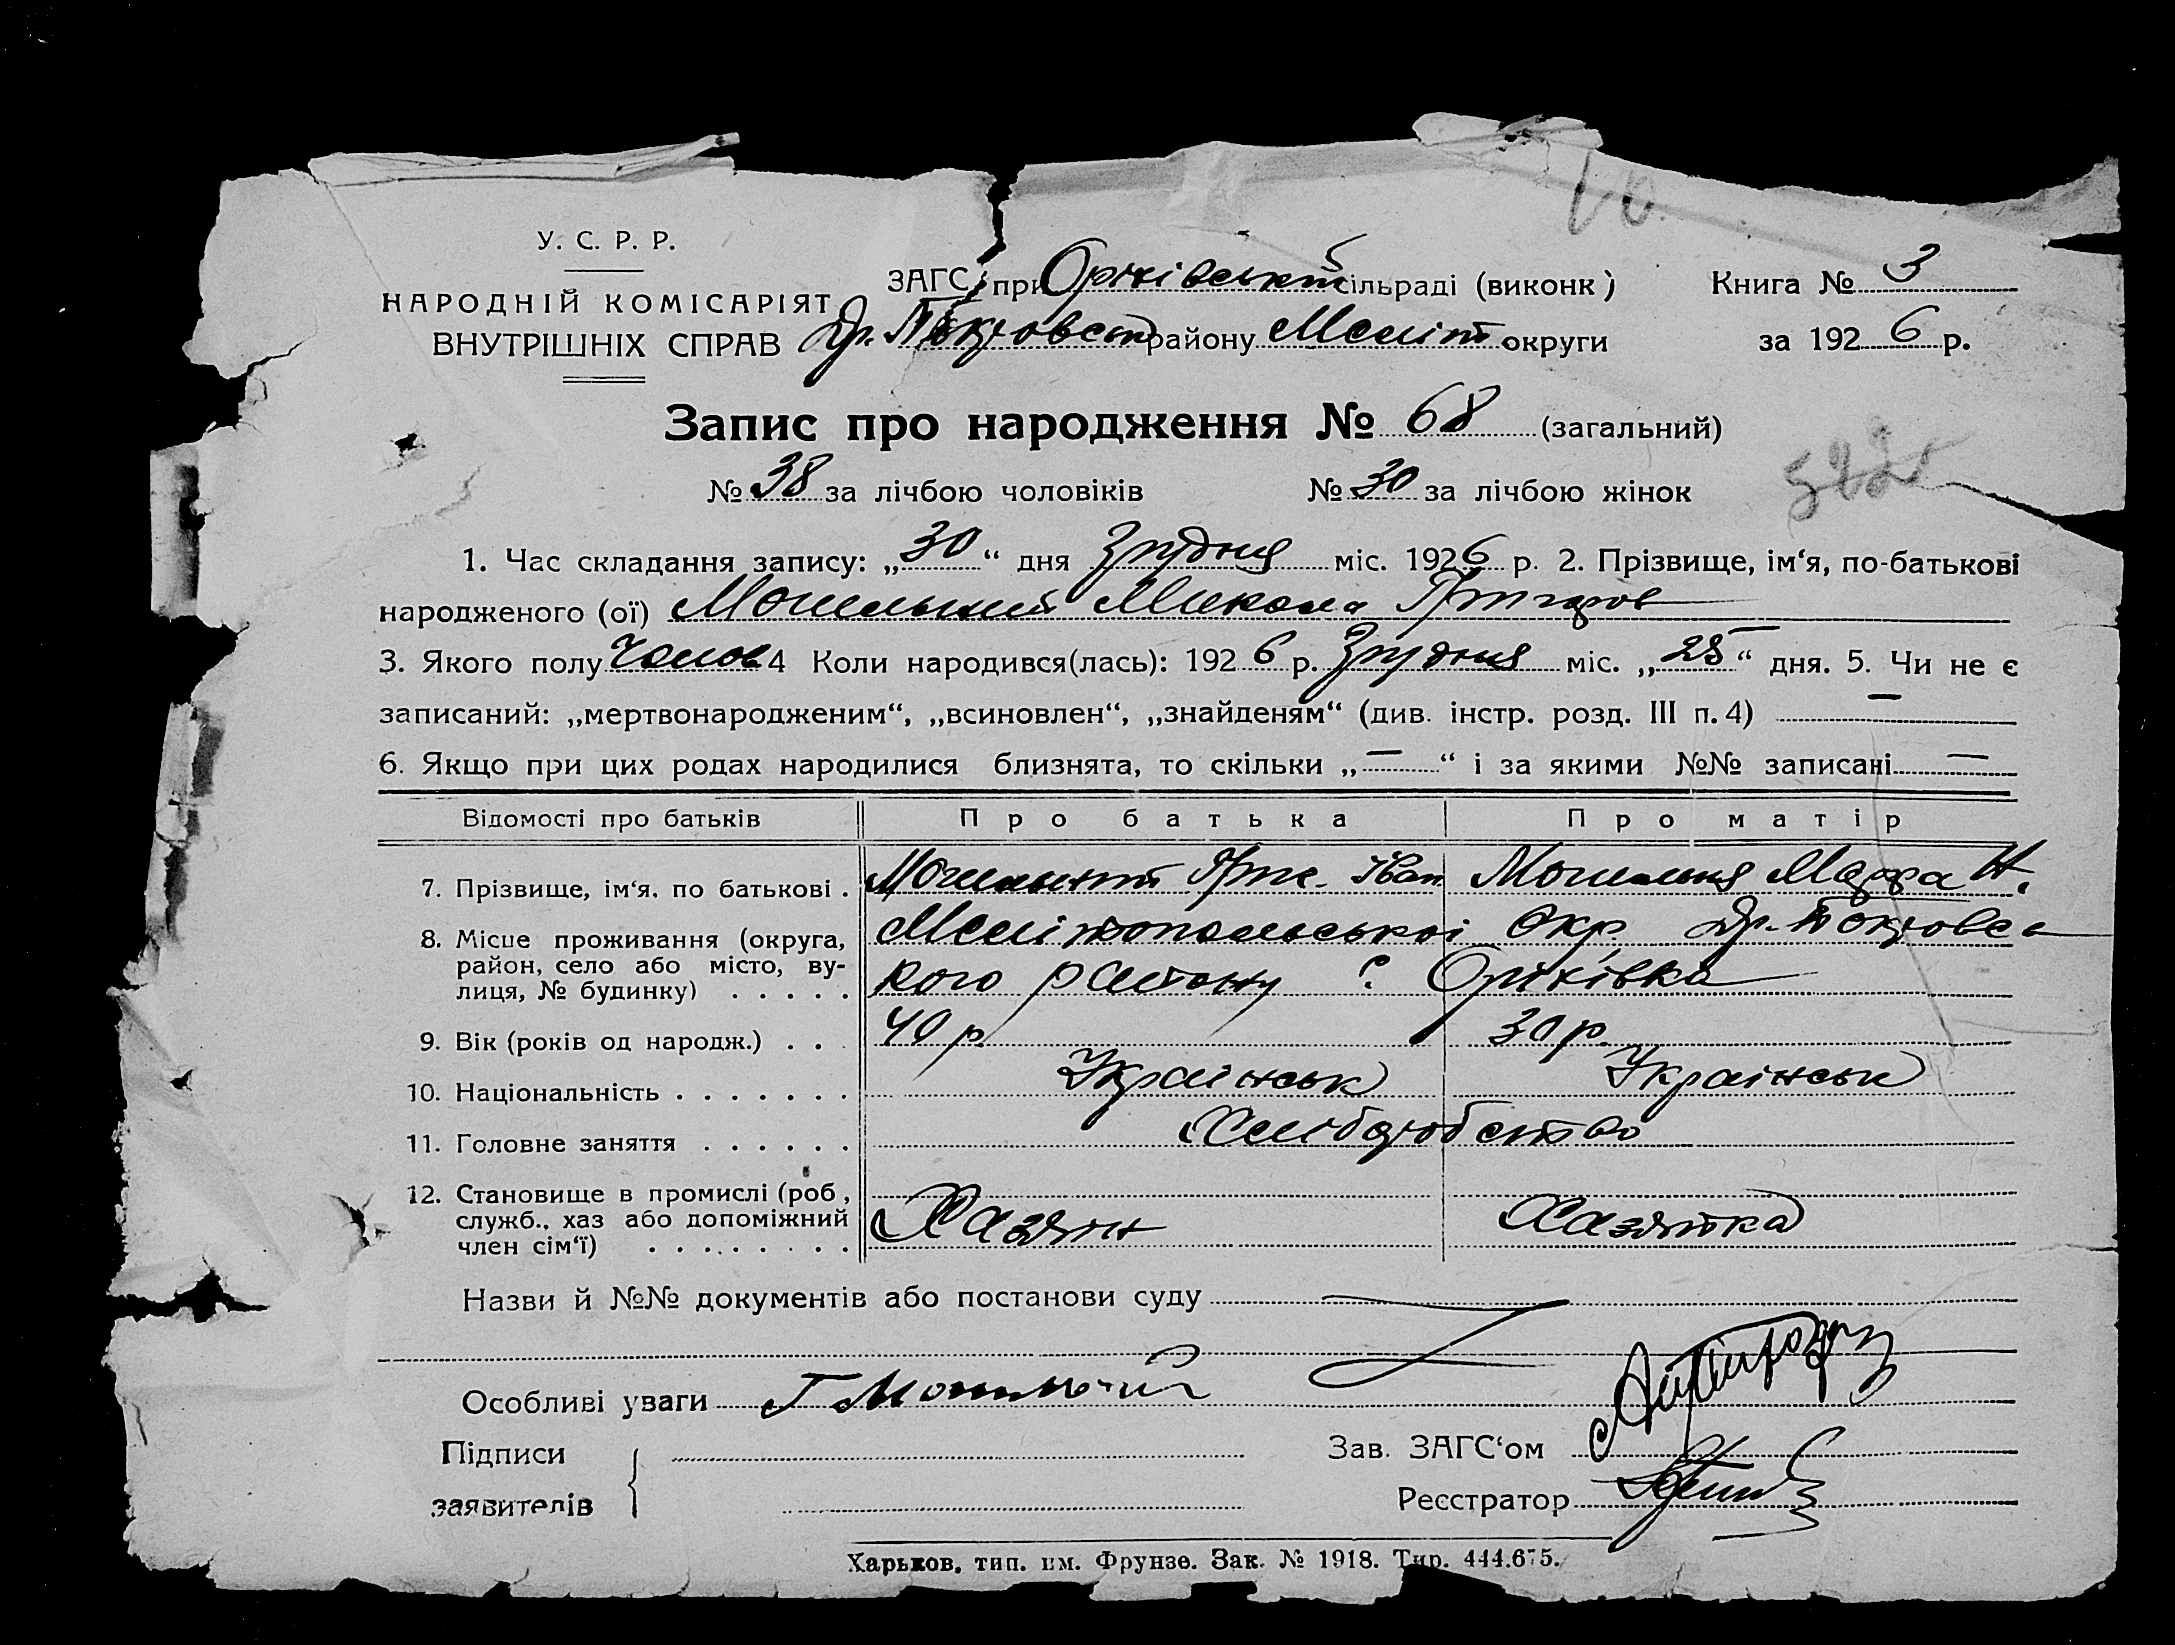 У. С. Р. Р.
НАРОДНІЙ КОМІСАРІЯТ
ВНУТРІШНІХ СПРАВ
ЗАГС при Оріхівській сільраді (виконк)
Др. Покровськ району Меліт округи
Книга № 3
за 1926 р.
Запис про народження № 68 (загальний)
№ 38 за лічбою чоловіків № 30 за лічбою жінок
522
1. Час складання запису: „30“ дня Грудня міс. 1926 р. 2. Прізвище, ім‘я, по-батькові
народженого (ої) Могильний Микола Григоров
3. Якого полу Чолов 4 Коли народився(лась): 1926 р. Грудня міс. „25“ дня. 5. Чи не є
записаний: „мертвонародженим“, „всиновлен“, „знайденям“ (див. інстр. розд. III п. 4) —
6. Якщо при цих родах народилися близнята, то скільки „—“ і за якими №№ записані —
Відомості про батьків Про батька Про матір
7. Прізвище, ім‘я, по батькові . Могильний Григ. Іван Могильня Марфа Н.
8. Місце проживання (округа, Мелітопольської Окр. Др. Покровсь
район, село або місто, ву- кого району с. Оріхівка
лиця, № будинку) . . . . .
9. Вік (років од народж.) . . . 40 р. 30 р.
10. Національність . . . . . . . Українськ Українськ
11. Головне заняття . . . . . . Хлібороб ство
12. Становище в промислі (роб,
служб., хаз або допоміжний Хазяїн Хазяйка
член сім‘ї) . . . . . . . . .
Назви й №№ документів або постанови суду
Особливі уваги Г Могильний
Підписи
заявителів
Зав. ЗАГС‘ом
Реєстратор
Харьков, тип. им. Фрунзе. Зак. № 1918. Тир. 444.675.